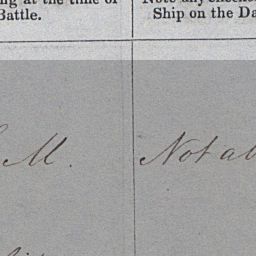 ing at the time of
Battle.
Note any
Ship on the Da
M.
Not ab